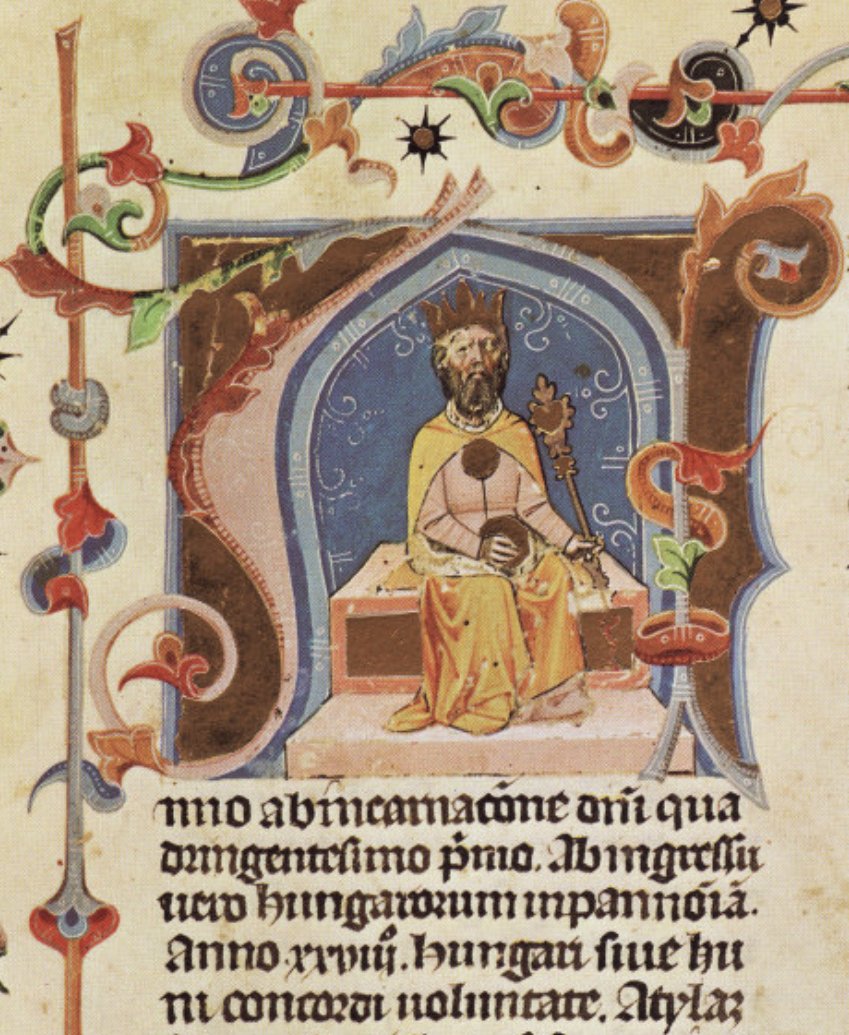 nno ab incarnatōne dn̄i qua
dringentesimo p̄mo. Ab ingressu
uero hungarorum in pannōiā.
Anno xxviiiº. hungari siue hu
ni concordi uoluntate. Atylaz